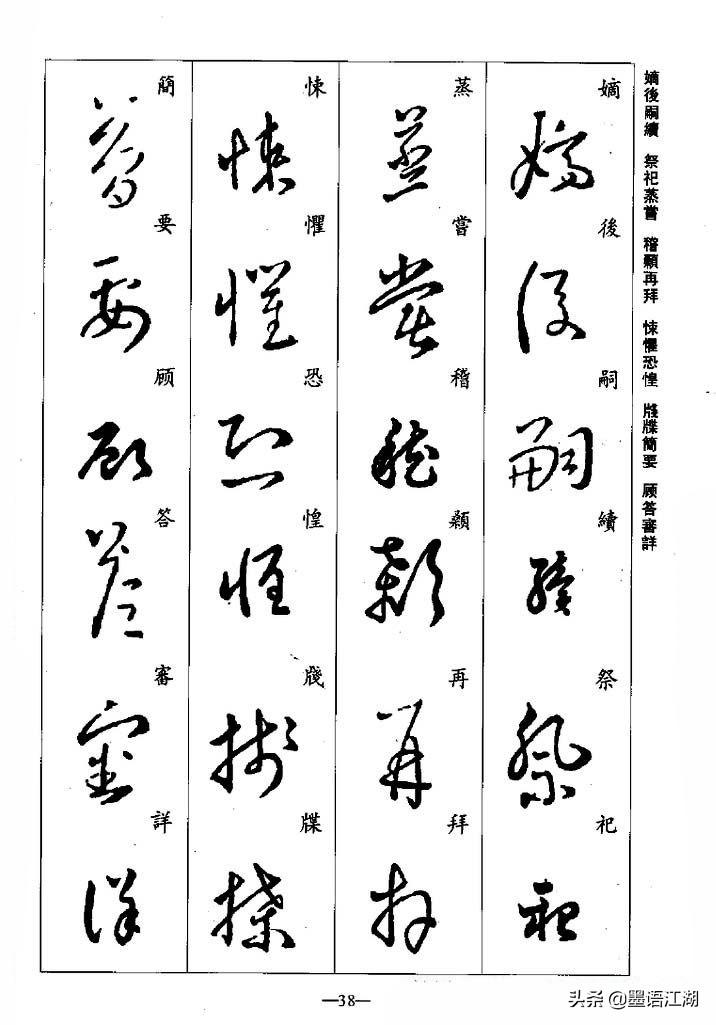 嫡後嗣續　祭祀蒸嘗　稽顙再拜　悚懼恐惶　牋牒簡要　顾答審詳
嫡後嗣續祭祀
蒸嘗稽顙再拜
悚懼恐惶牋牒
簡要顾答審詳
—38—
头条 @墨语江湖